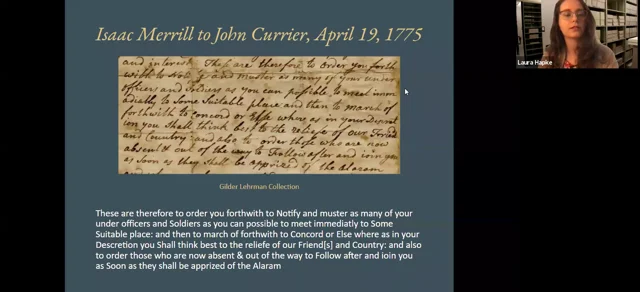 Isaac Merrill to John Currier, April 19, 1775
and interest These are therefore to order you forth
with to Notify and muster as many of your under
officers and Soldiers as you can possible to meet imm
adiatly to Some Suitable place and then to march of
forthwith to concord or Else where as in your Descret
ion you Shall think best to the reliefe of our Friend
and Country: and also to order those who are now
absent & out of the way to Follow after and ioin you
as Soon as they shall be apprized of the Alaram
Gilder Lehrman Collection
These are therefore to order you forthwith to Notify and muster as many of your
under officers and Soldiers as you can possible to meet immediatly to Some
Suitable place: and then to march of forthwith to Concord or Else where as in your
Descretion you Shall think best to the reliefe of our Friend[s] and Country: and also
to order those who are now absent & out of the way to Follow after and ioin you
as Soon as they shall be apprized of the Alaram
Laura Hapke